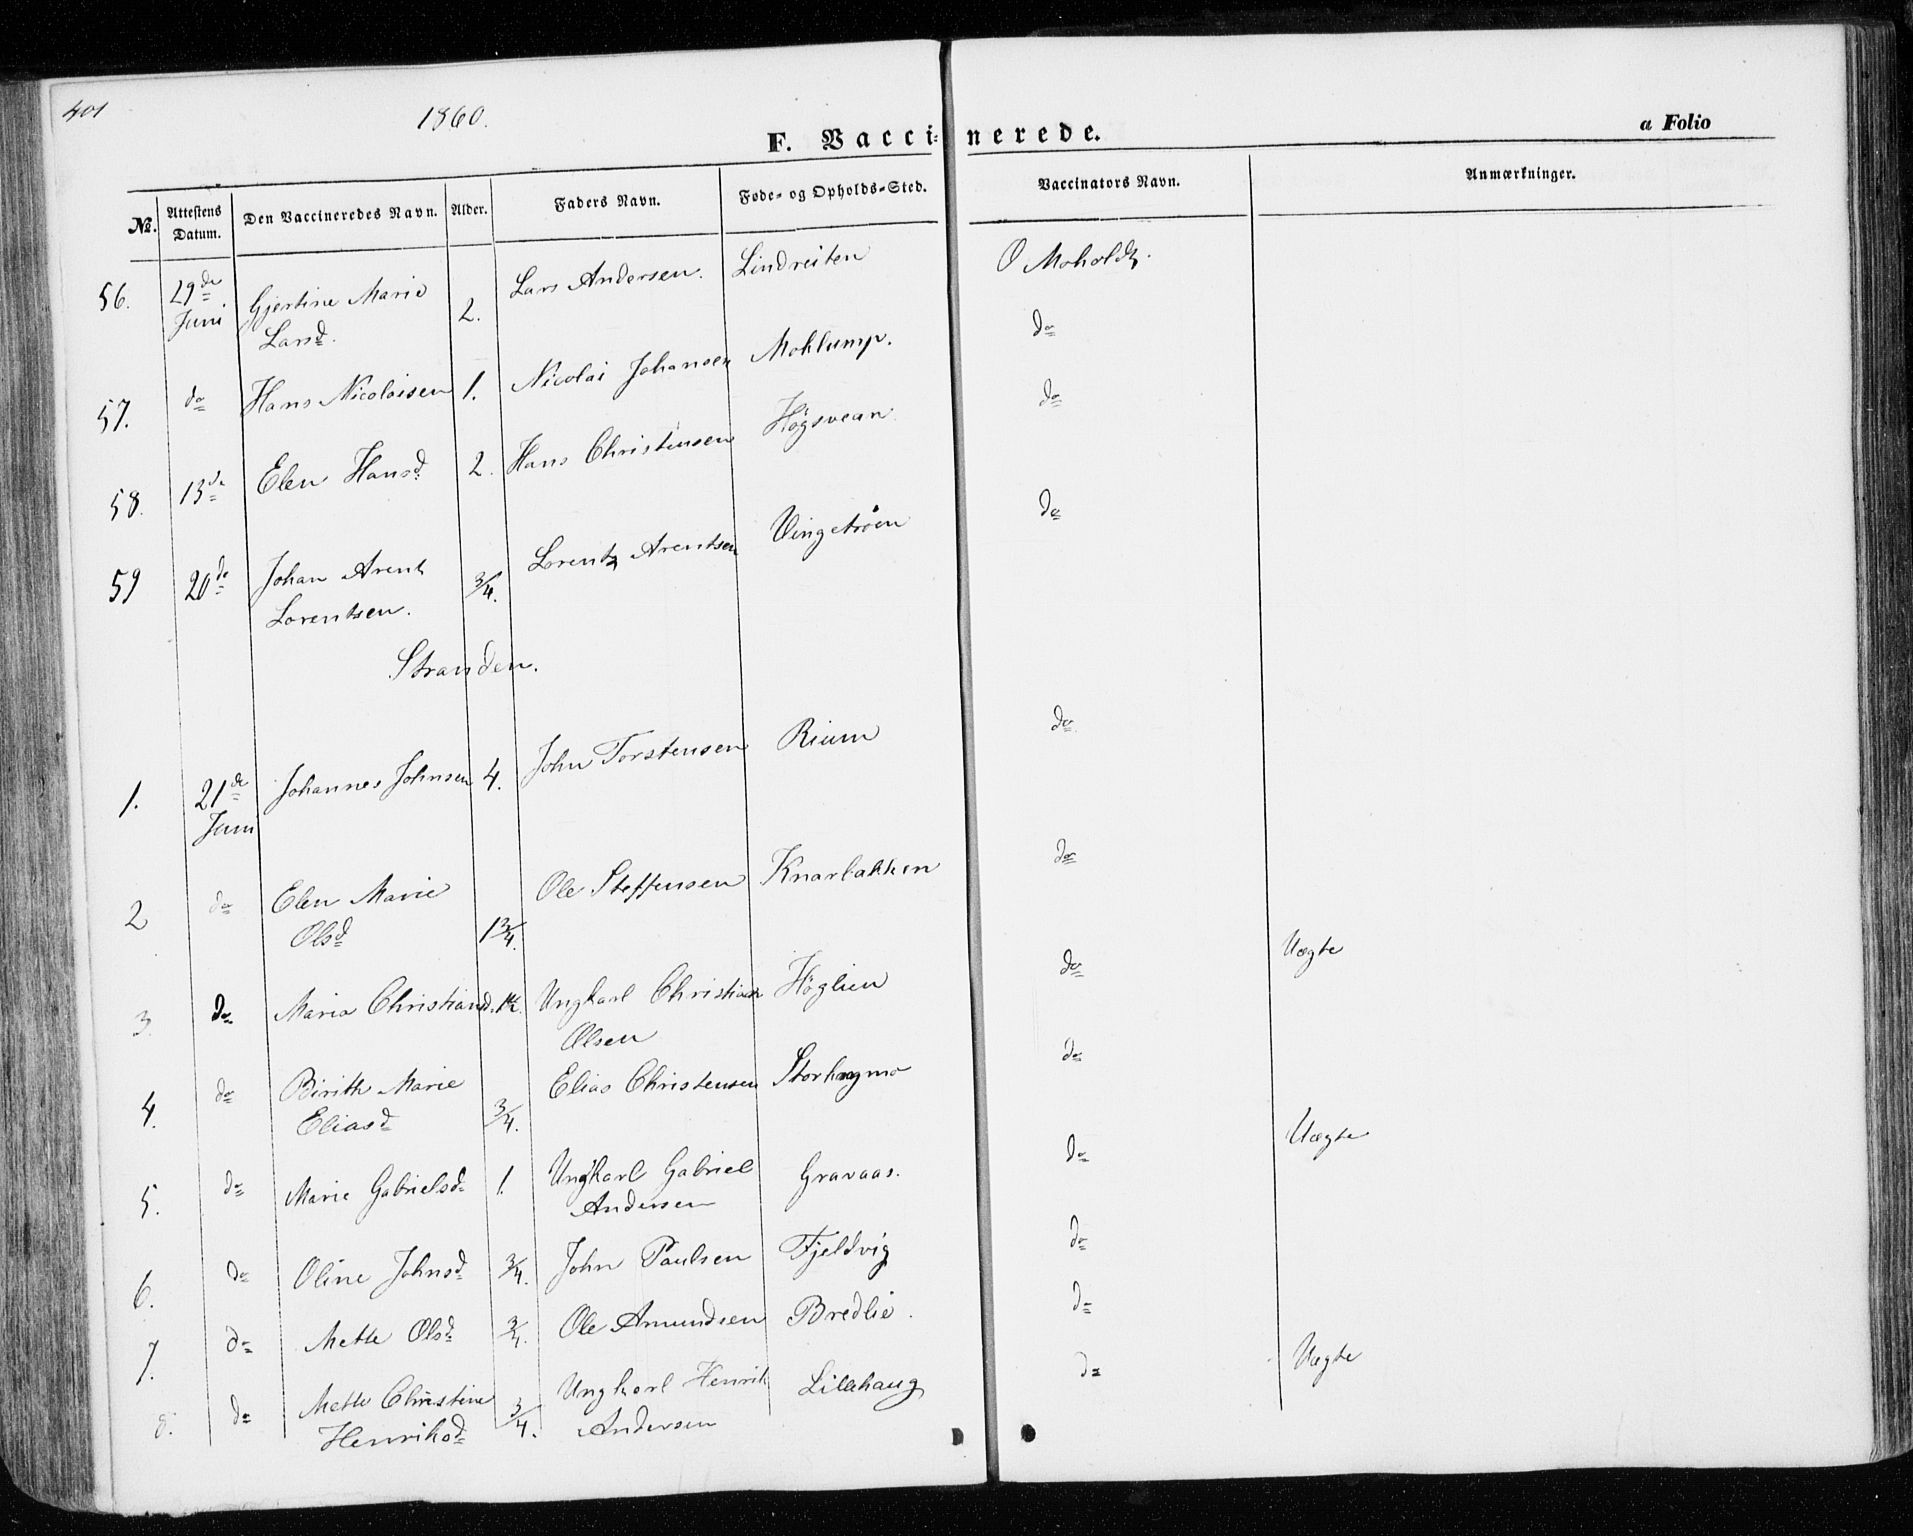 401
1860.
F. Vaccinerede.
a Folio
No. Attestens Datum. Den Vaccineredes Navn. Alder. Faders Navn. Føde- og Opholds-Sted. Vaccinators Navn. Anmærkninger.
56. 29de Juni Gjertine Marie Larsd. 2. Lars Andersen. Lindreiten O Moholdt.
57. do Hans Nicolaisen 1. Nicolai Johansen Moklump. do
58. 13de Elen Hansd. 2. Hans Christensen Høgsvean do
59 20de Johan Arent Lorentsen. 3/4. Lorentz Arentsen Vingetrøen do
Stranden.
1. 21de Juni Johannes Johnsen 4. John Torstensen Rium do
2 do Elen Marie Olsd 1 3/4. Ole Steffensen Knarbakken do
3. do Maria Christiansd. Ungkarl Christian Olsen Höglien do Uægte
4. do Birith Marie Eliasd 3/4. Elias Christensen Storhaugmo do
5. do Marie Gabrielsd 1. Ungkarl Gabriel Andersen Gravaas. do Uægte
6. do Oline Johnsd 3/4. John Paulsen Fjeldvig do
7. do Mette Olsd 3/4. Ole Amundsen Bredlie. do
8. do Mette Christine Henriksd 3/4. Ungkarl Henrik Andersen Lillehaug do Uægte